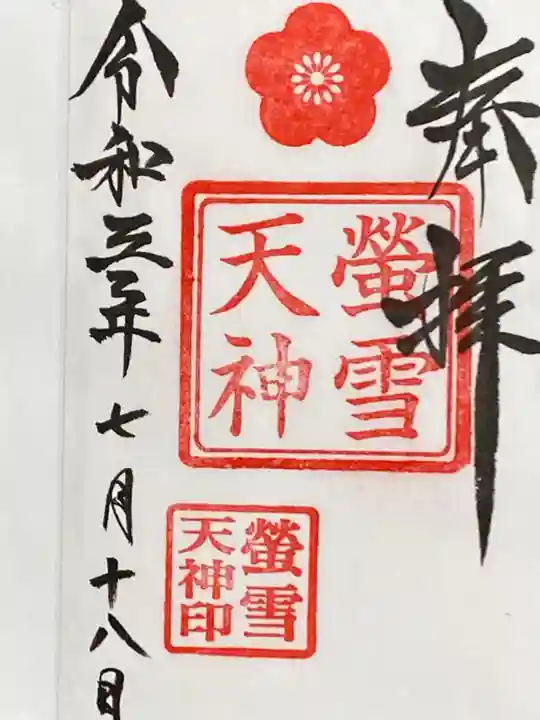 奉拝
螢雪
天神
螢雪
天神印
令和三年七月十八日